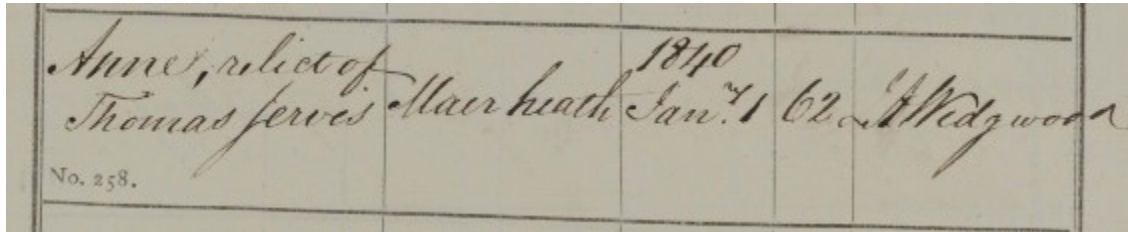 Anne, relict of
Thomas Jervis
Maer heath
1840
Jan.ʸ 1
62
Wedgwood
No. 258.